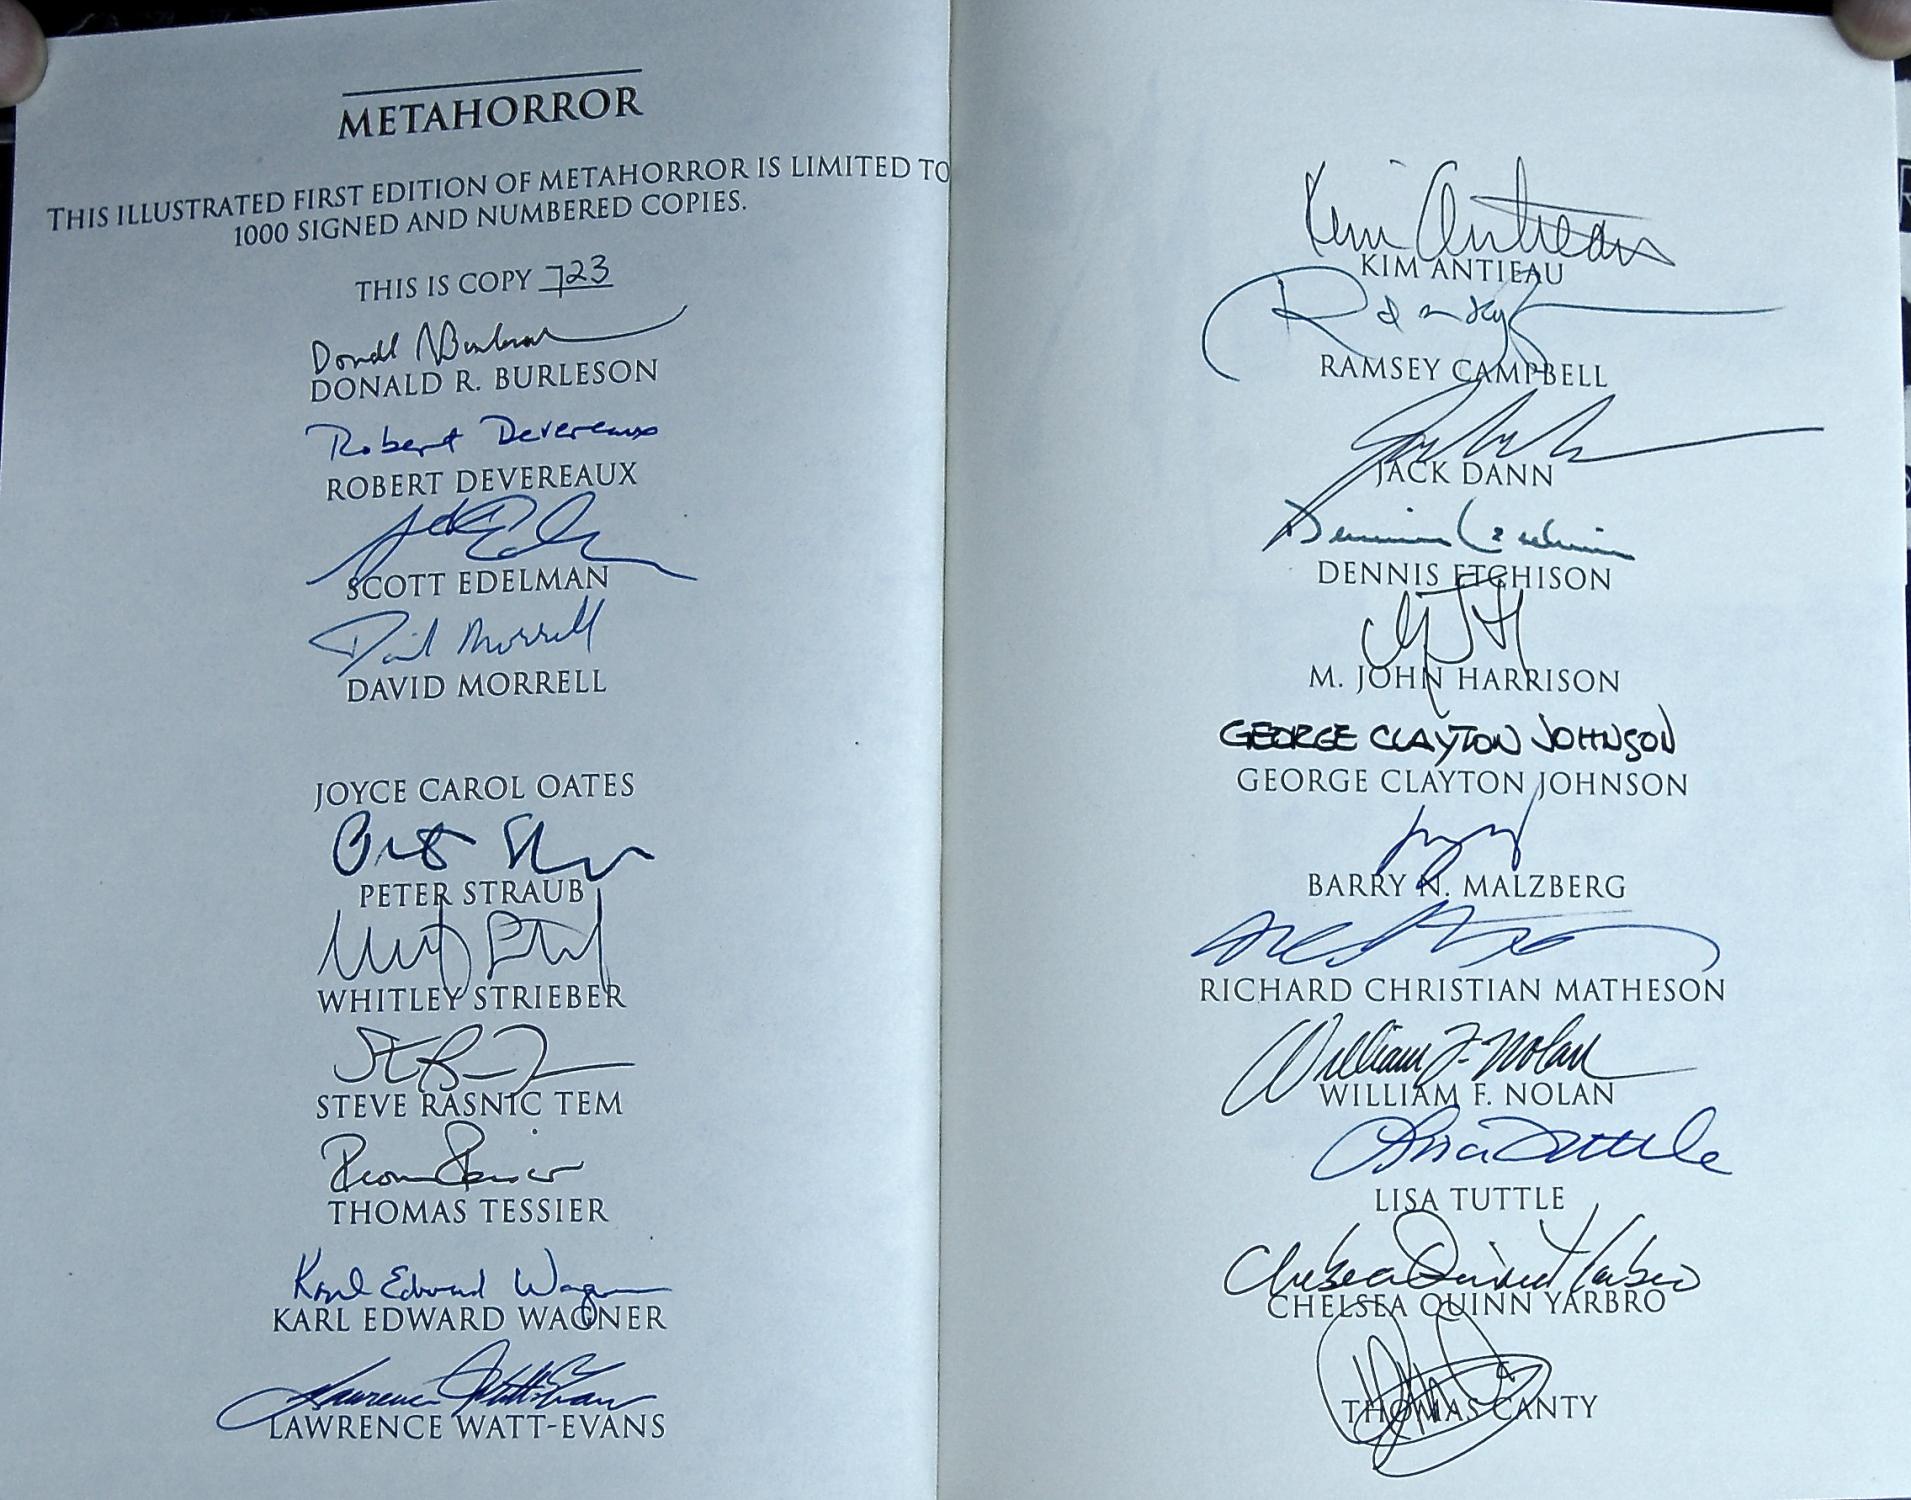 METAHORROR
THIS ILLUSTRATED FIRST EDITION OF METAHORROR IS LIMITED TO
1000 SIGNED AND NUMBERED COPIES.
THIS IS COPY 723
DONALD R. BURLESON
Robert Devereaux
ROBERT DEVEREAUX
SCOTT EDELMAN
David Morrell
DAVID MORRELL
JOYCE CAROL OATES
PETER STRAUB
WHITLEY STRIEBER
STEVE RASNIC TEM
THOMAS TESSIER
Karl Edward Wagner
KARL EDWARD WAGNER
Lawrence Watt-Evans
LAWRENCE WATT-EVANS
Kim Antieau
KIM ANTIEAU
Ramsey
RAMSEY CAMPBELL
JACK DANN
DENNIS ETCHISON
M. JOHN HARRISON
GEORGE CLAYTON JOHNSON
GEORGE CLAYTON JOHNSON
BARRY N. MALZBERG
RICHARD CHRISTIAN MATHESON
William F. Nolan
WILLIAM F. NOLAN
Lisa Tuttle
LISA TUTTLE
Chelsea Quinn Yarbro
CHELSEA QUINN YARBRO
THOMAS CANTY